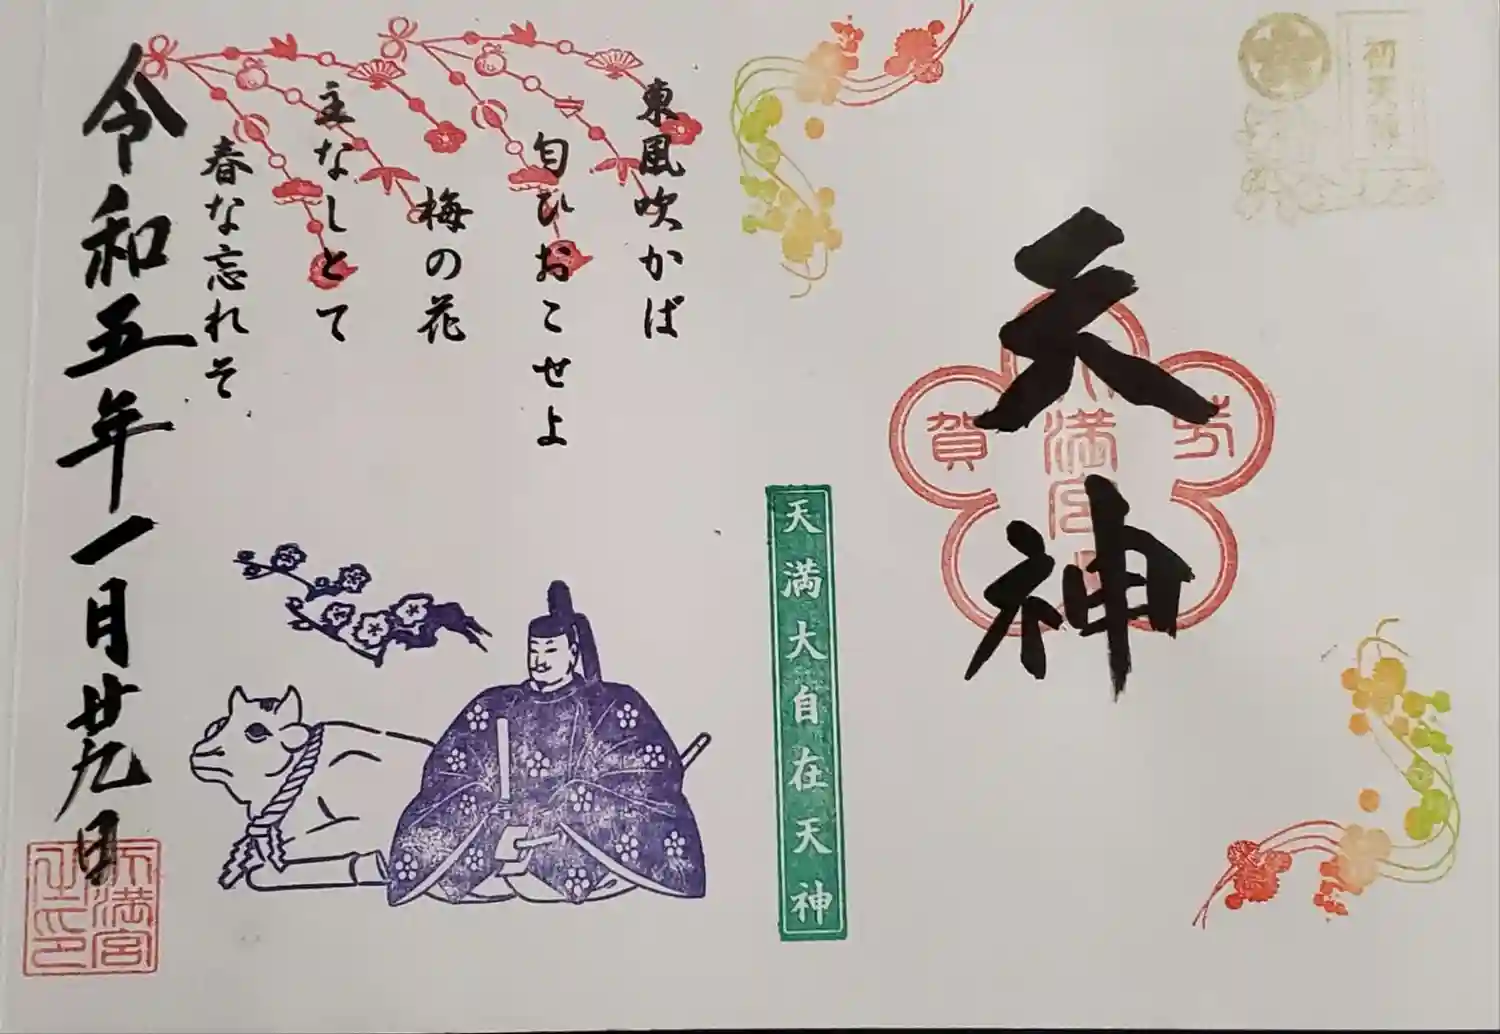 初天神
天神
芳賀
天満宮
天満大自在天神
東風吹かば
匂ひおこせよ
梅の花
主なしとて
春な忘れそ
令和五年一月廿九日
天満宮之印